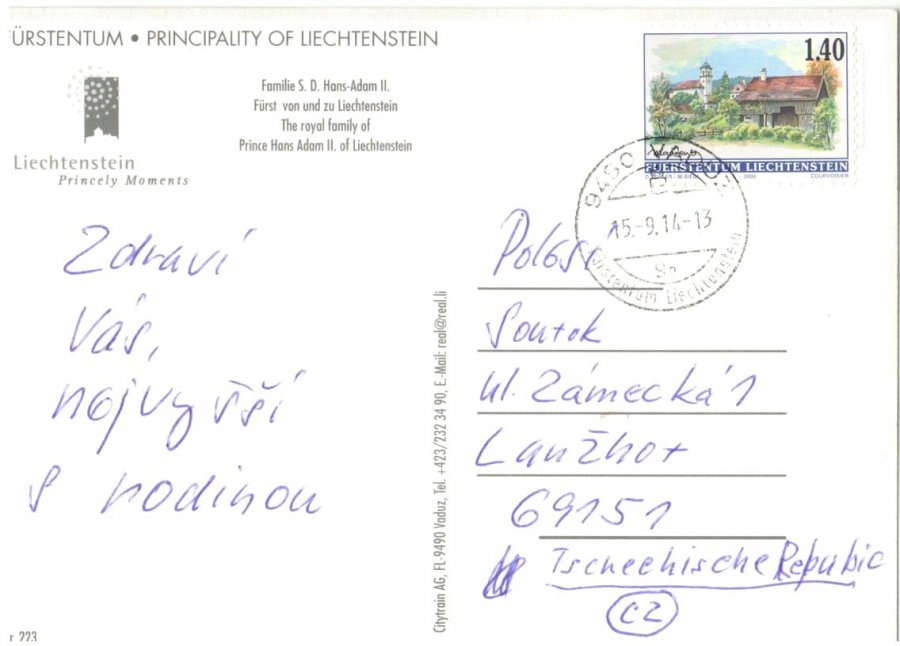 ÜRSTENTUM • PRINCIPALITY OF LIECHTENSTEIN
Familie S. D. Hans-Adam II.
Fürst von und zu Liechtenstein
The royal family of
Prince Hans Adam II. of Liechtenstein
Liechtenstein
Princely Moments
1.40
FUERSTENTUM LIECHTENSTEIN
2000
COURVOISIER
9490 VADUZ
15.-9.14-13
Fürstentum Liechtenstein
Zdraví
Vás,
nejvyšší
s rodinou
Citytrain AG, FL-9490 Vaduz, Tel. +423/232 34 90, E.-Mail: real@real.li
Soutok
ul. Zámecká 1
Lanžhot
69151
Tschechische Repubic
CZ
r 223